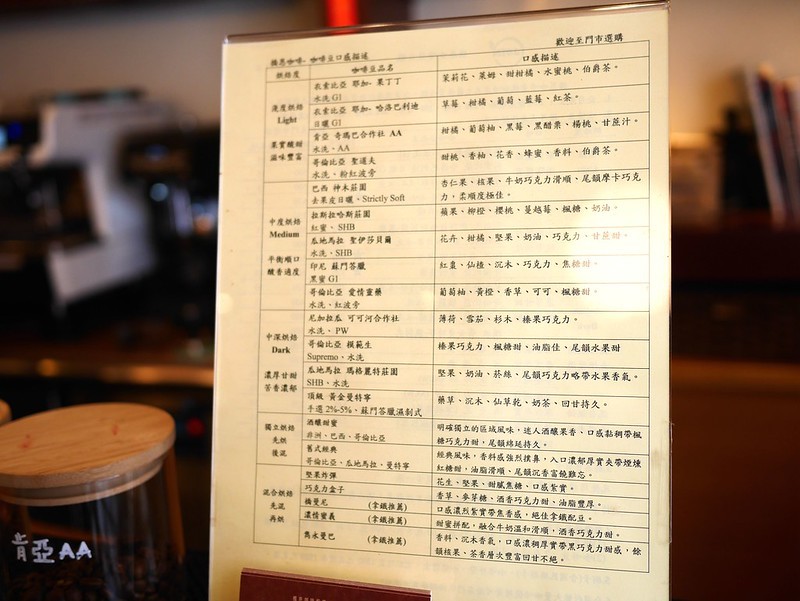 歡迎至門市選購
咖啡豆口感描述
烘焙度 咖啡豆品名 口感描述
淺度烘焙
Light
果實酸甜
滋味豐富
衣索比亞 耶加- 果丁丁
水洗 G1
茉莉花、萊姆、甜柑橘、水蜜桃、伯爵茶。
衣索比亞 耶加- 哈洛巴利迪
日曬 G1
草莓、柑橘、葡萄、藍莓、紅茶。
肯亞 奇瑪巴合作社 AA
水洗、AA
柑橘、葡萄柚、黑莓、黑醋栗、楊桃、甘蔗汁。
哥倫比亞 聖道夫
水洗、粉紅波旁
甜桃、香柚、花香、蜂蜜、香料、伯爵茶。
中度烘焙
Medium
平衡順口
酸香適度
巴西 神木莊園
去果皮日曬、Strictly Soft
杏仁果、核果、牛奶巧克力滑順、尾韻摩卡巧克
力，柔順度極佳。
拉斯拉哈斯莊園
紅蜜、SHB
蘋果、柳橙、櫻桃、蔓越莓、楓糖、奶油。
瓜地馬拉 聖伊莎貝爾
水洗、SHB
花卉、柑橘、堅果、奶油、巧克力、甘蔗甜。
印尼 蘇門答臘
黑蜜 G1
紅棗、仙楂、沉木、巧克力、焦糖甜。
哥倫比亞 愛情靈藥
水洗、紅波旁
葡萄柚、黃橙、香草、可可、楓糖甜。
中深烘焙
Dark
濃厚甘甜
苦香濃郁
尼加拉瓜 可可河合作社
水洗、PW
薄荷、雪茄、杉木、榛果巧克力。
哥倫比亞 模範生
Supremo、水洗
榛果巧克力、楓糖甜、油脂佳、尾韻水果甜
瓜地馬拉 瑪格麗特莊園
SHB、水洗
堅果、奶油、菸絲、尾韻巧克力略帶水果香氣。
頂級 黃金曼特寧
手選 2%-5%、蘇門答臘濕剝式
藥草、沉木、仙草乾、奶茶、回甘持久。
獨立烘焙
先烘
後混
酒釀甜蜜
非洲、巴西、哥倫比亞
明確獨立的區域風味，迷人酒釀果香、口感黏稠帶楓
糖巧克力甜，尾韻綿延持久。
舊式經典
哥倫比亞、瓜地馬拉、曼特寧
經典風味，香料感強烈撲鼻，入口濃郁厚實夾帶煙燻
紅糖甜，油脂滑順、尾韻沉香富饒難忘。
混合烘焙
先混
再烘
堅果炸彈
花生、堅果、甜膩焦糖、口感紮實。
巧克力盒子
香草、麥芽糖、酒香巧克力甜、油脂豐厚。
橋曼尼 (拿鐵推薦)
口感濃烈紮實帶焦香感，絕佳拿鐵配豆。
濃情蜜義 (拿鐵推薦)
甜蜜拼配，融合牛奶溫和滑順，酒香巧克力甜。
喬水曼巴 (拿鐵推薦)
香料、沉木香氣，口感濃稠厚實帶黑巧克力甜感，餘
韻核果、茶香層次豐富回甘不絕。
肯亞AA